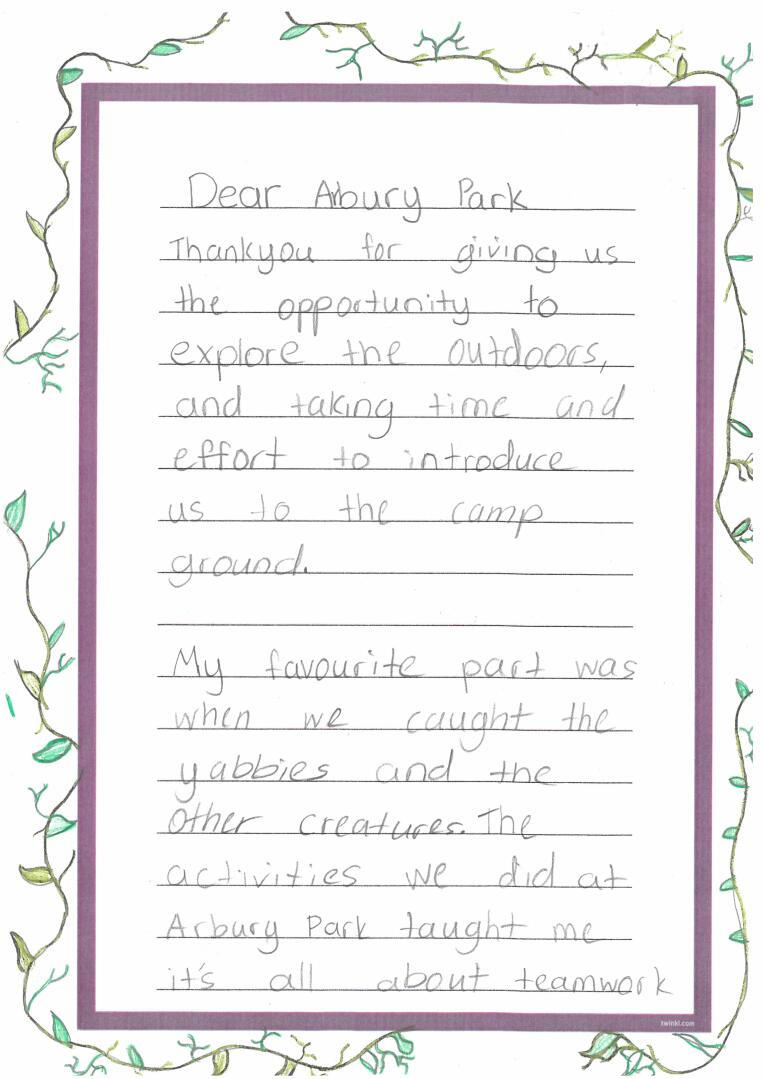 Dear Arbury Park
Thankyou for giving us
the opportunity to
explore the outdoors,
and taking time and
effort to introduce
us to the camp
ground.
My favourite part was
when we caught the
yabbies and the
other creatures. The
activities we did at
Arbury Park taught me
it's all about teamwork
twinkl.com